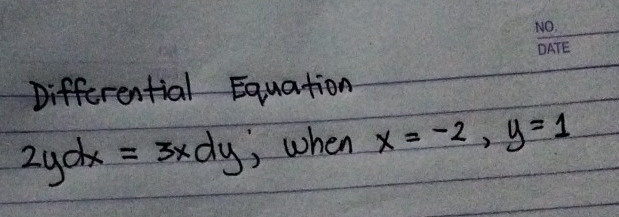 NO.
DATE
Differential Equation
2ydx = 3xdy; when x = -2, y = 1